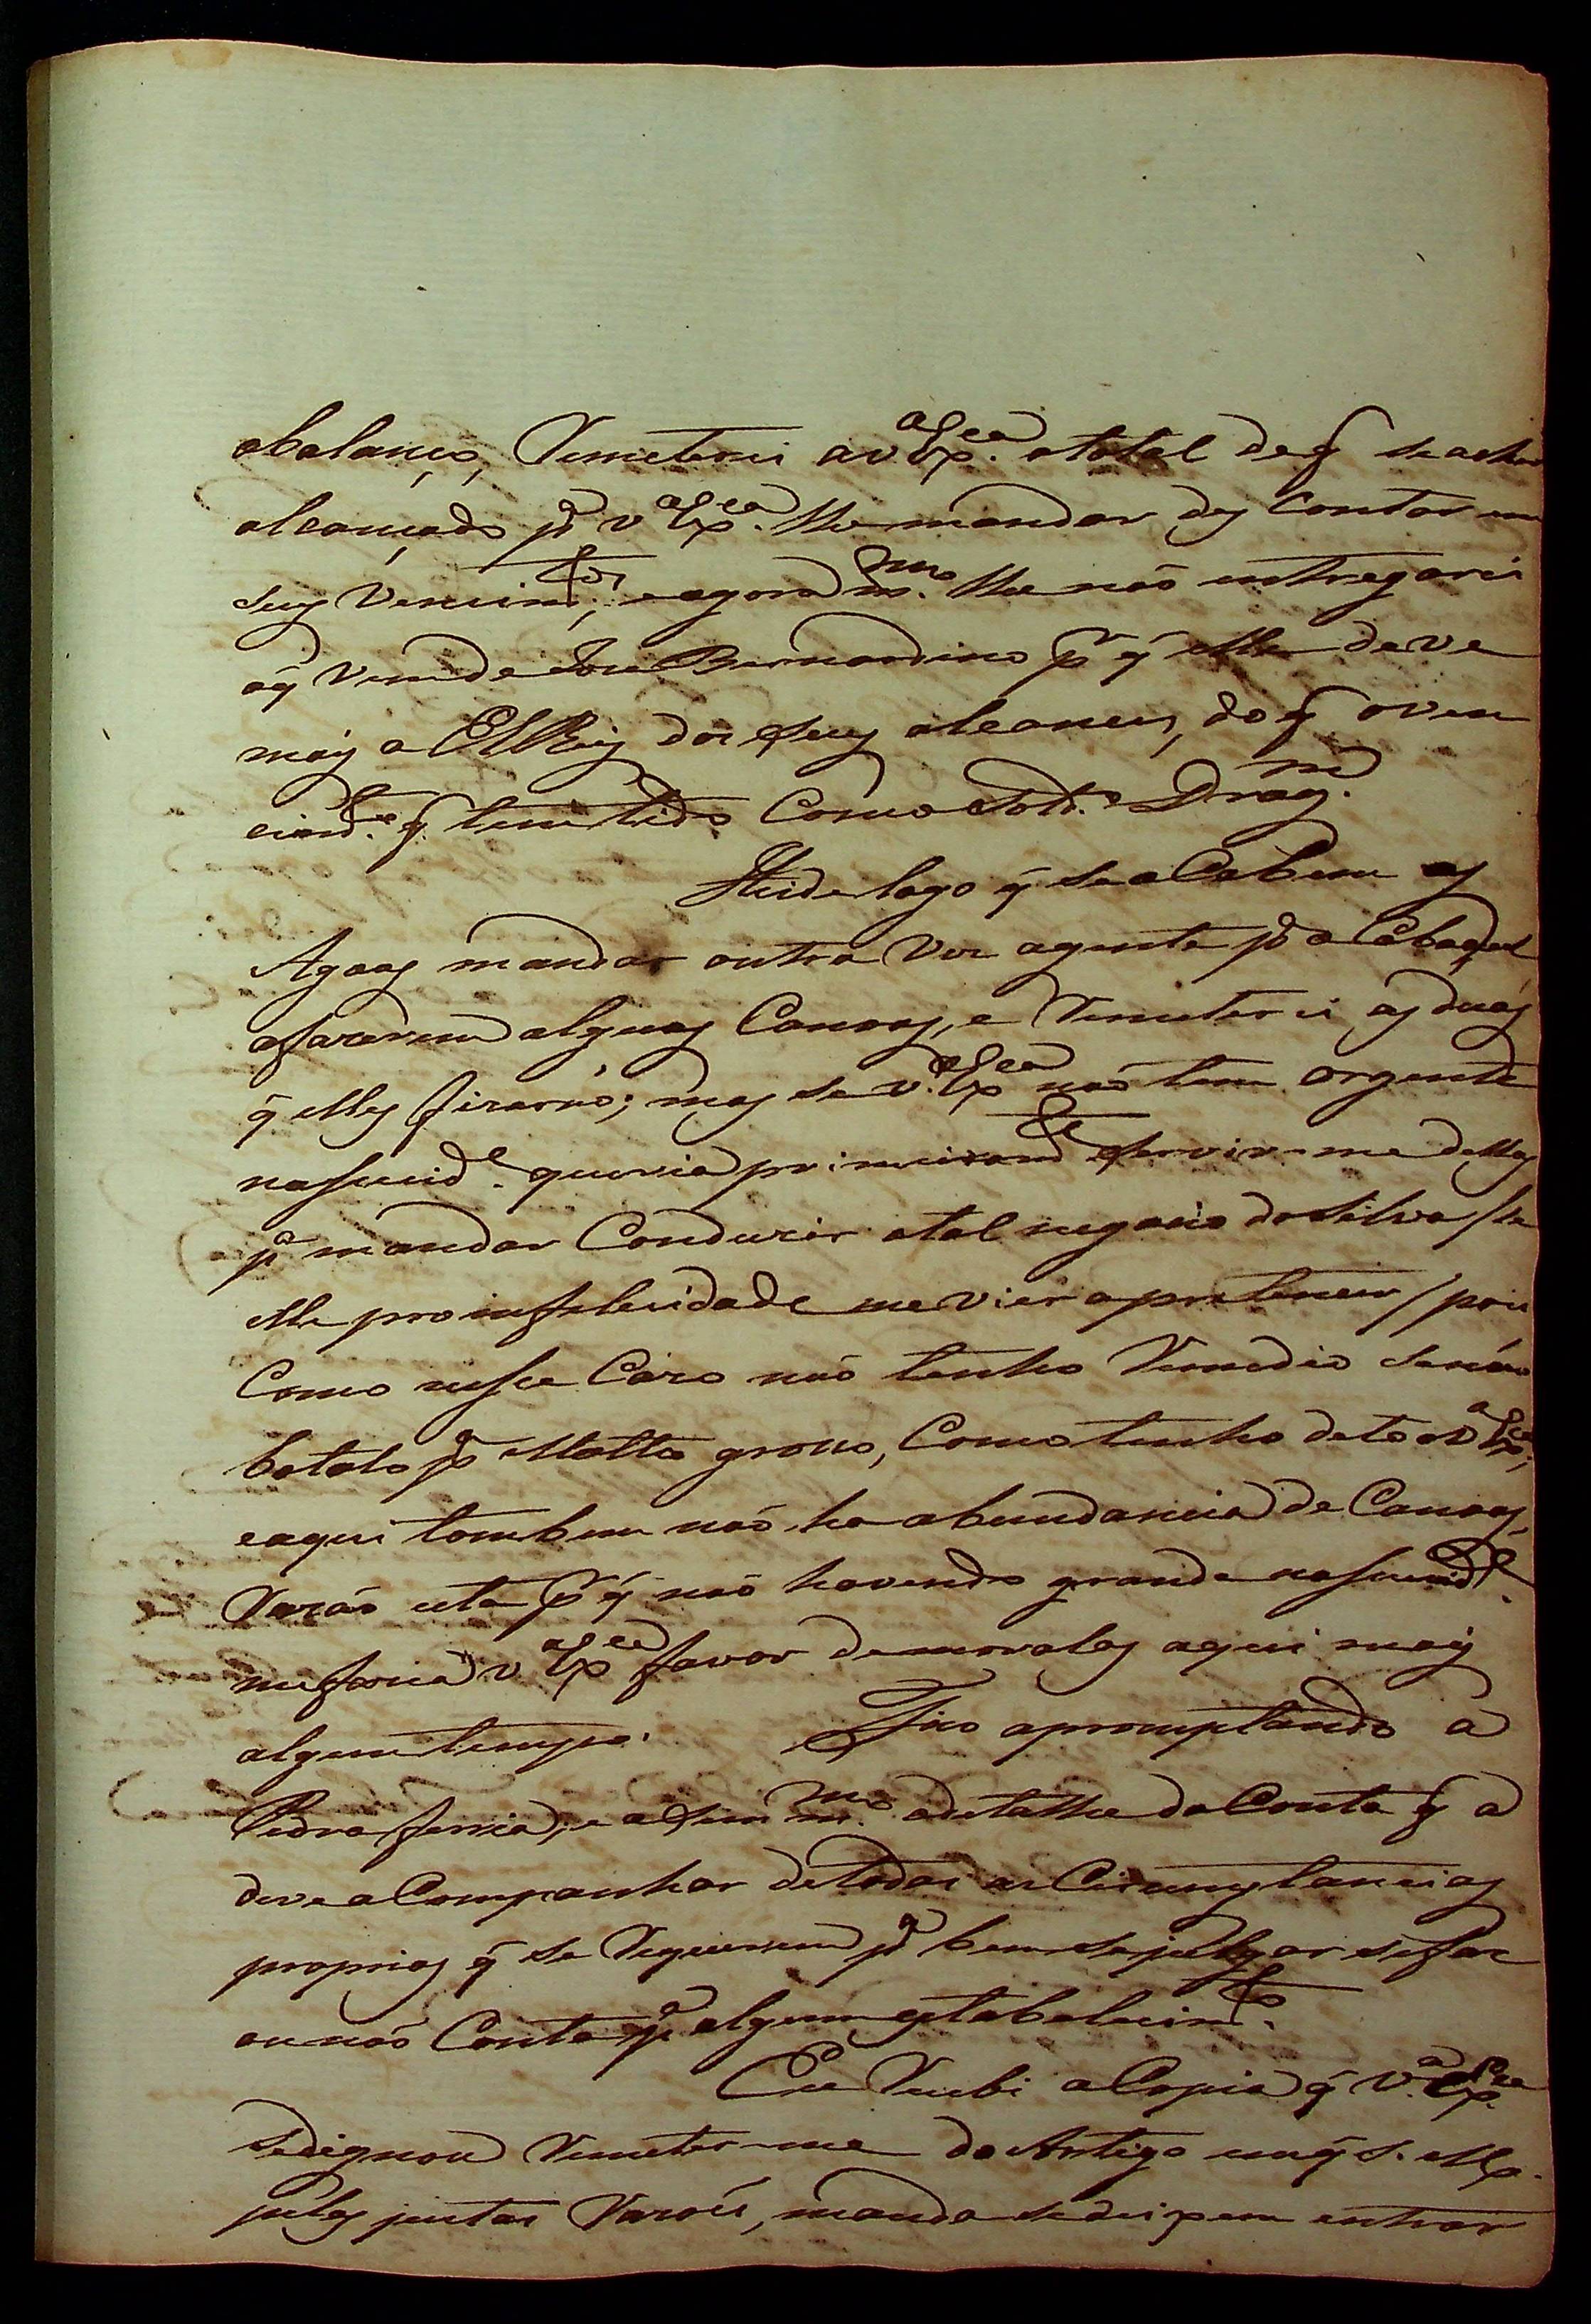 abalanço, Remeterei a v.ª Ex.ca ototal deq̃ seacha
alcançado p.ª v.ª Ex.ca lhe mandar des Contar em
seus Vencim.tos, eagora m.mo lhe não entregarei
oq̃ Vem de Joze Bernardino p.r q̃ elle deve
máis a ElRey dos seus alcances, doq̃ oven
cim.to q̃ tem tido Como Sold.º Drag.m
Heide logo q̃ se aCabem as
Agoas mandar outra Vez agente p.ª o Cabaçal
afazerem algumas Canoas, e Remeterei as duas
q̃ elles fizerão; mas se v.ª Ex.ca não tem orgente
nessecid.e queria primeiram.te servir-me dellas
p.ª mandar Conduzir otal negocio doSilva /se
elle pro infelecidade me vier apertencer/ pois
Como nesse Cazo não tenho Remedio senão
botalo p.ª Matto grosso, Como tenho dito a v.ª Ex.ca;
eaqui tambem não ha abundancia de Canoas,
Razão esta p.r q̃ não havendo grande nessecid.e
mefaria v.ª Ex.ca favor demoralas aqui mais
algum tempo. Fico apromptando a
Pedra ferria, e asim m.mo odetalhe da Conta q̃ a
deve aCompanhar detodas as Circunstancias
proprias q̃ se Requerem p.ª bem sejulgar sefas
ou não Conta p.ª algum estabalecim.to.
Eu Recebi aCopia q̃ V.ª Ex.ca
sedignou Remeter-me do Artigo emq̃ S. Mg.
pelas justas Razoés, manda sedeixem entrar